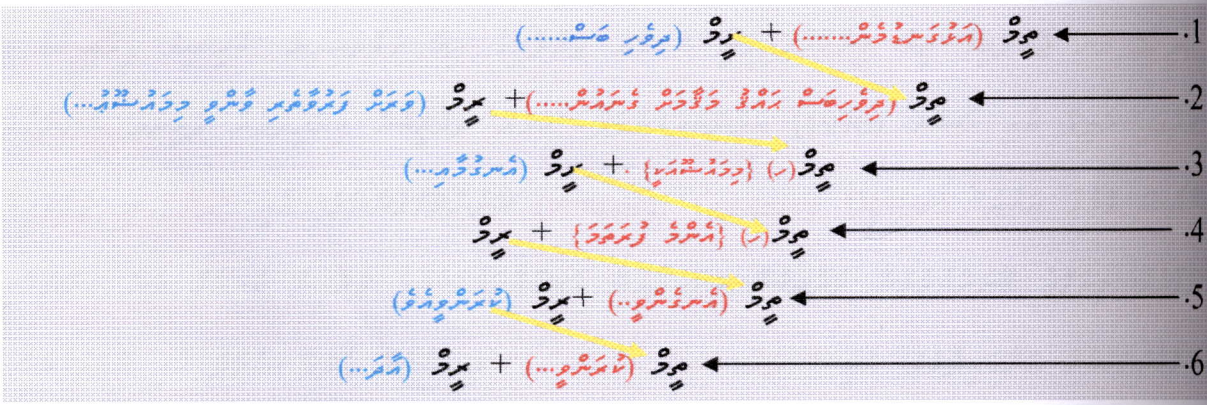 1. ތީމް (އަޅުގަނޑުމެން.......) + ރީމް (ދިވެހި ބަސް......)
2. ތީމް (ދިވެހިބަސް ޙައްޤު މަޤާމަށް ގެނައުން.....)+ ރީމް (ވަރަށް ފަރުވާތެރި ވާންވީ މިމައުޟޫޢު...)
3. ތީމް(ހ) {މިމައުޟޫއަކީ} .+ ރީމް (އެނގުމާއި...)
4. ތީމް(ހ) {އެންމެ ފުރަތަމަ} + ރީމް
5. ތީމް (އެނގެންވީ..) +ރީމް (ކުރަންވީއެވެ)
6. ތީމް (ކުރަންވީ...) + ރީމް (އާދަ...)